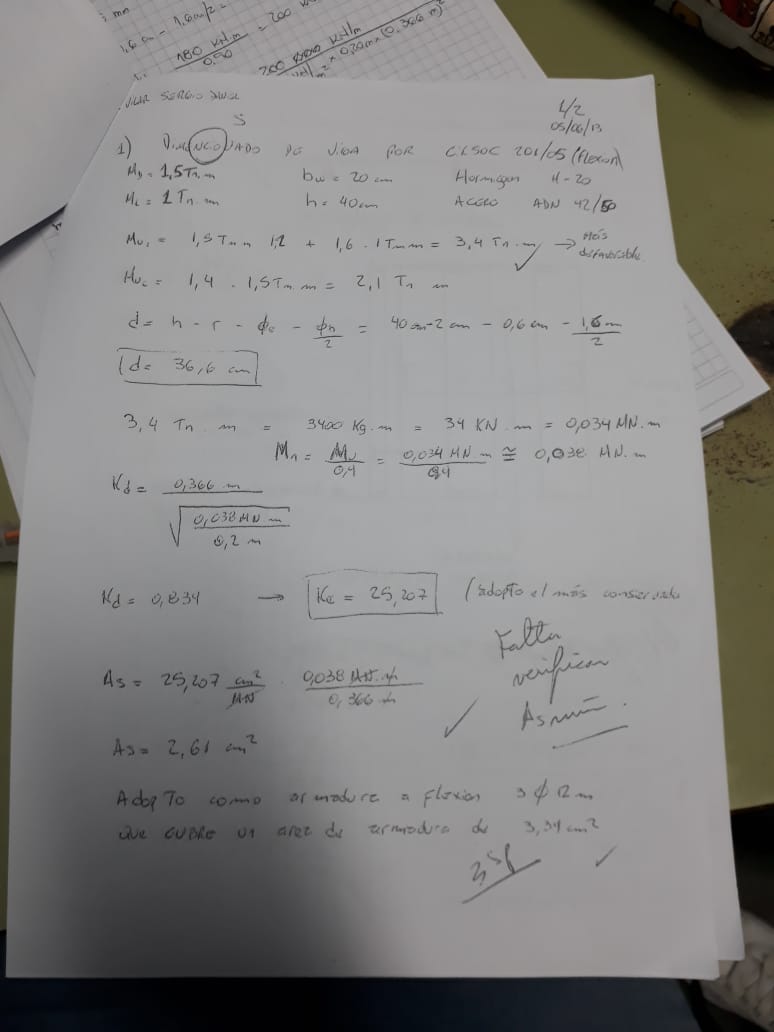 1,6 cm - 1,6 cm/2 =
180 KN.m
0.90
= 200
200 KN/m
m² * 0,20m * (0,366 m)²
SERGIO
S
1/2
05/06/13
1) DIMENCIONADO DE VIGA POR CIRSOC 201/05 (flexion)
MD = 1,5 Tn.m bw = 20 cm Hormigon H-20
ML = 1 Tn.m h = 40cm ACERO ADN 42/50
Mu1 = 1,5 Tn.m 1,2 + 1,6 . 1 Tn.m = 3,4 Tn.m ✓ → Más
desfavorable
Mu2 = 1,4 . 1,5 Tn.m = 2,1 Tn m
d = h - r - ϕe - ϕn/2 = 40 cm - 2 cm - 0,6 cm - 1,6 cm/2
d = 36,6 cm
3,4 Tn.m = 3400 Kg.m = 34 KN.m = 0,034 MN.m
Mn = Mu/0,9 = 0,034 MN m/0,9 ≅ 0,038 MN.m
Kd = 0,366 m
√ 0,038 MN.m
0,2 m
Kd = 0,834 → Ke = 25,207 (adopto el más
Falta
verificar
Asmín.
As = 25,207 cm²/MN . 0,038 MN.m/0,366 m ✓
As = 2,61 cm²
Adopto como armadura a flexion 3 ϕ 12 m
que cubre un area de armadura de 3,39 cm²
✓